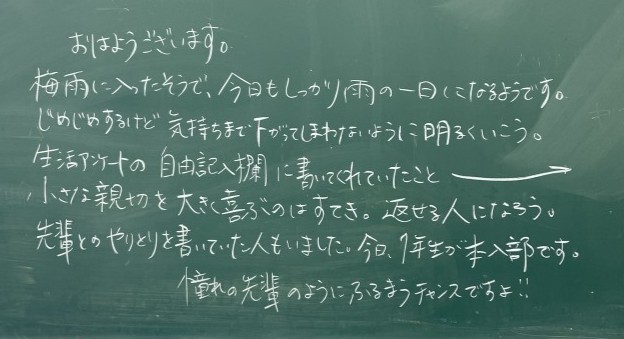 おはようございます。
梅雨に入ったそうで、今日もしっかり雨の一日になるようです。
じめじめするけど気持ちまで下がってしまわないように明るくいこう。
生活アンケートの自由記入欄に書いてくれていたこと →
小さな親切を大きく喜ぶのはすてき。返せる人になろう。
先輩とのやりとりを書いていた人もいました。今日、1年生が本入部です。
憧れの先輩のようにふるまうチャンスですよ!!